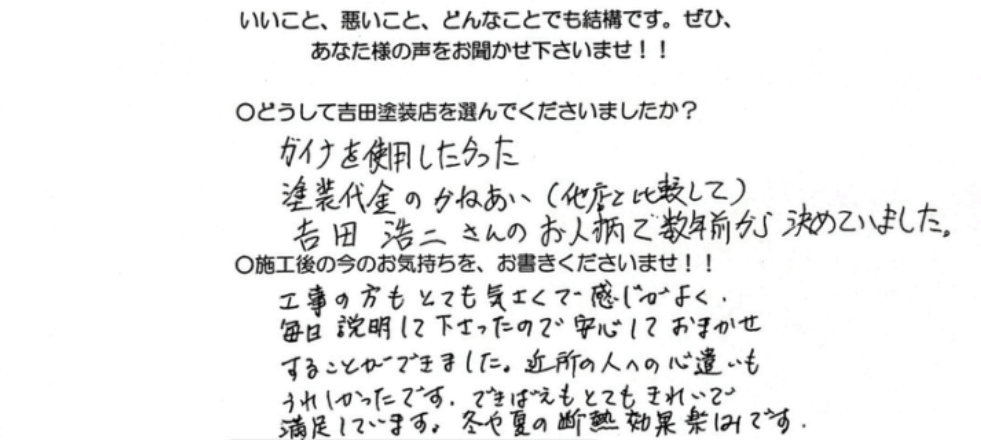 いいこと、悪いこと、どんなことでも結構です。ぜひ、
あなた様の声をお聞かせ下さいませ！！
○どうして吉田塗装店を選んでくださいましたか？
ガイナを使用したかった
塗装代金のかねあい（他店と比較して）
吉田 浩二さんのお人柄で数年前から決めていました。
○施工後の今のお気持ちを、お書きくださいませ！！
工事の方もとても気さくで感じがよく、
毎日説明して下さったので安心しておまかせ
することができました。近所の人への心遣いも
うれしかったです。できばえもとてもきれいで
満足しています。冬や夏の断熱効果楽しみです。